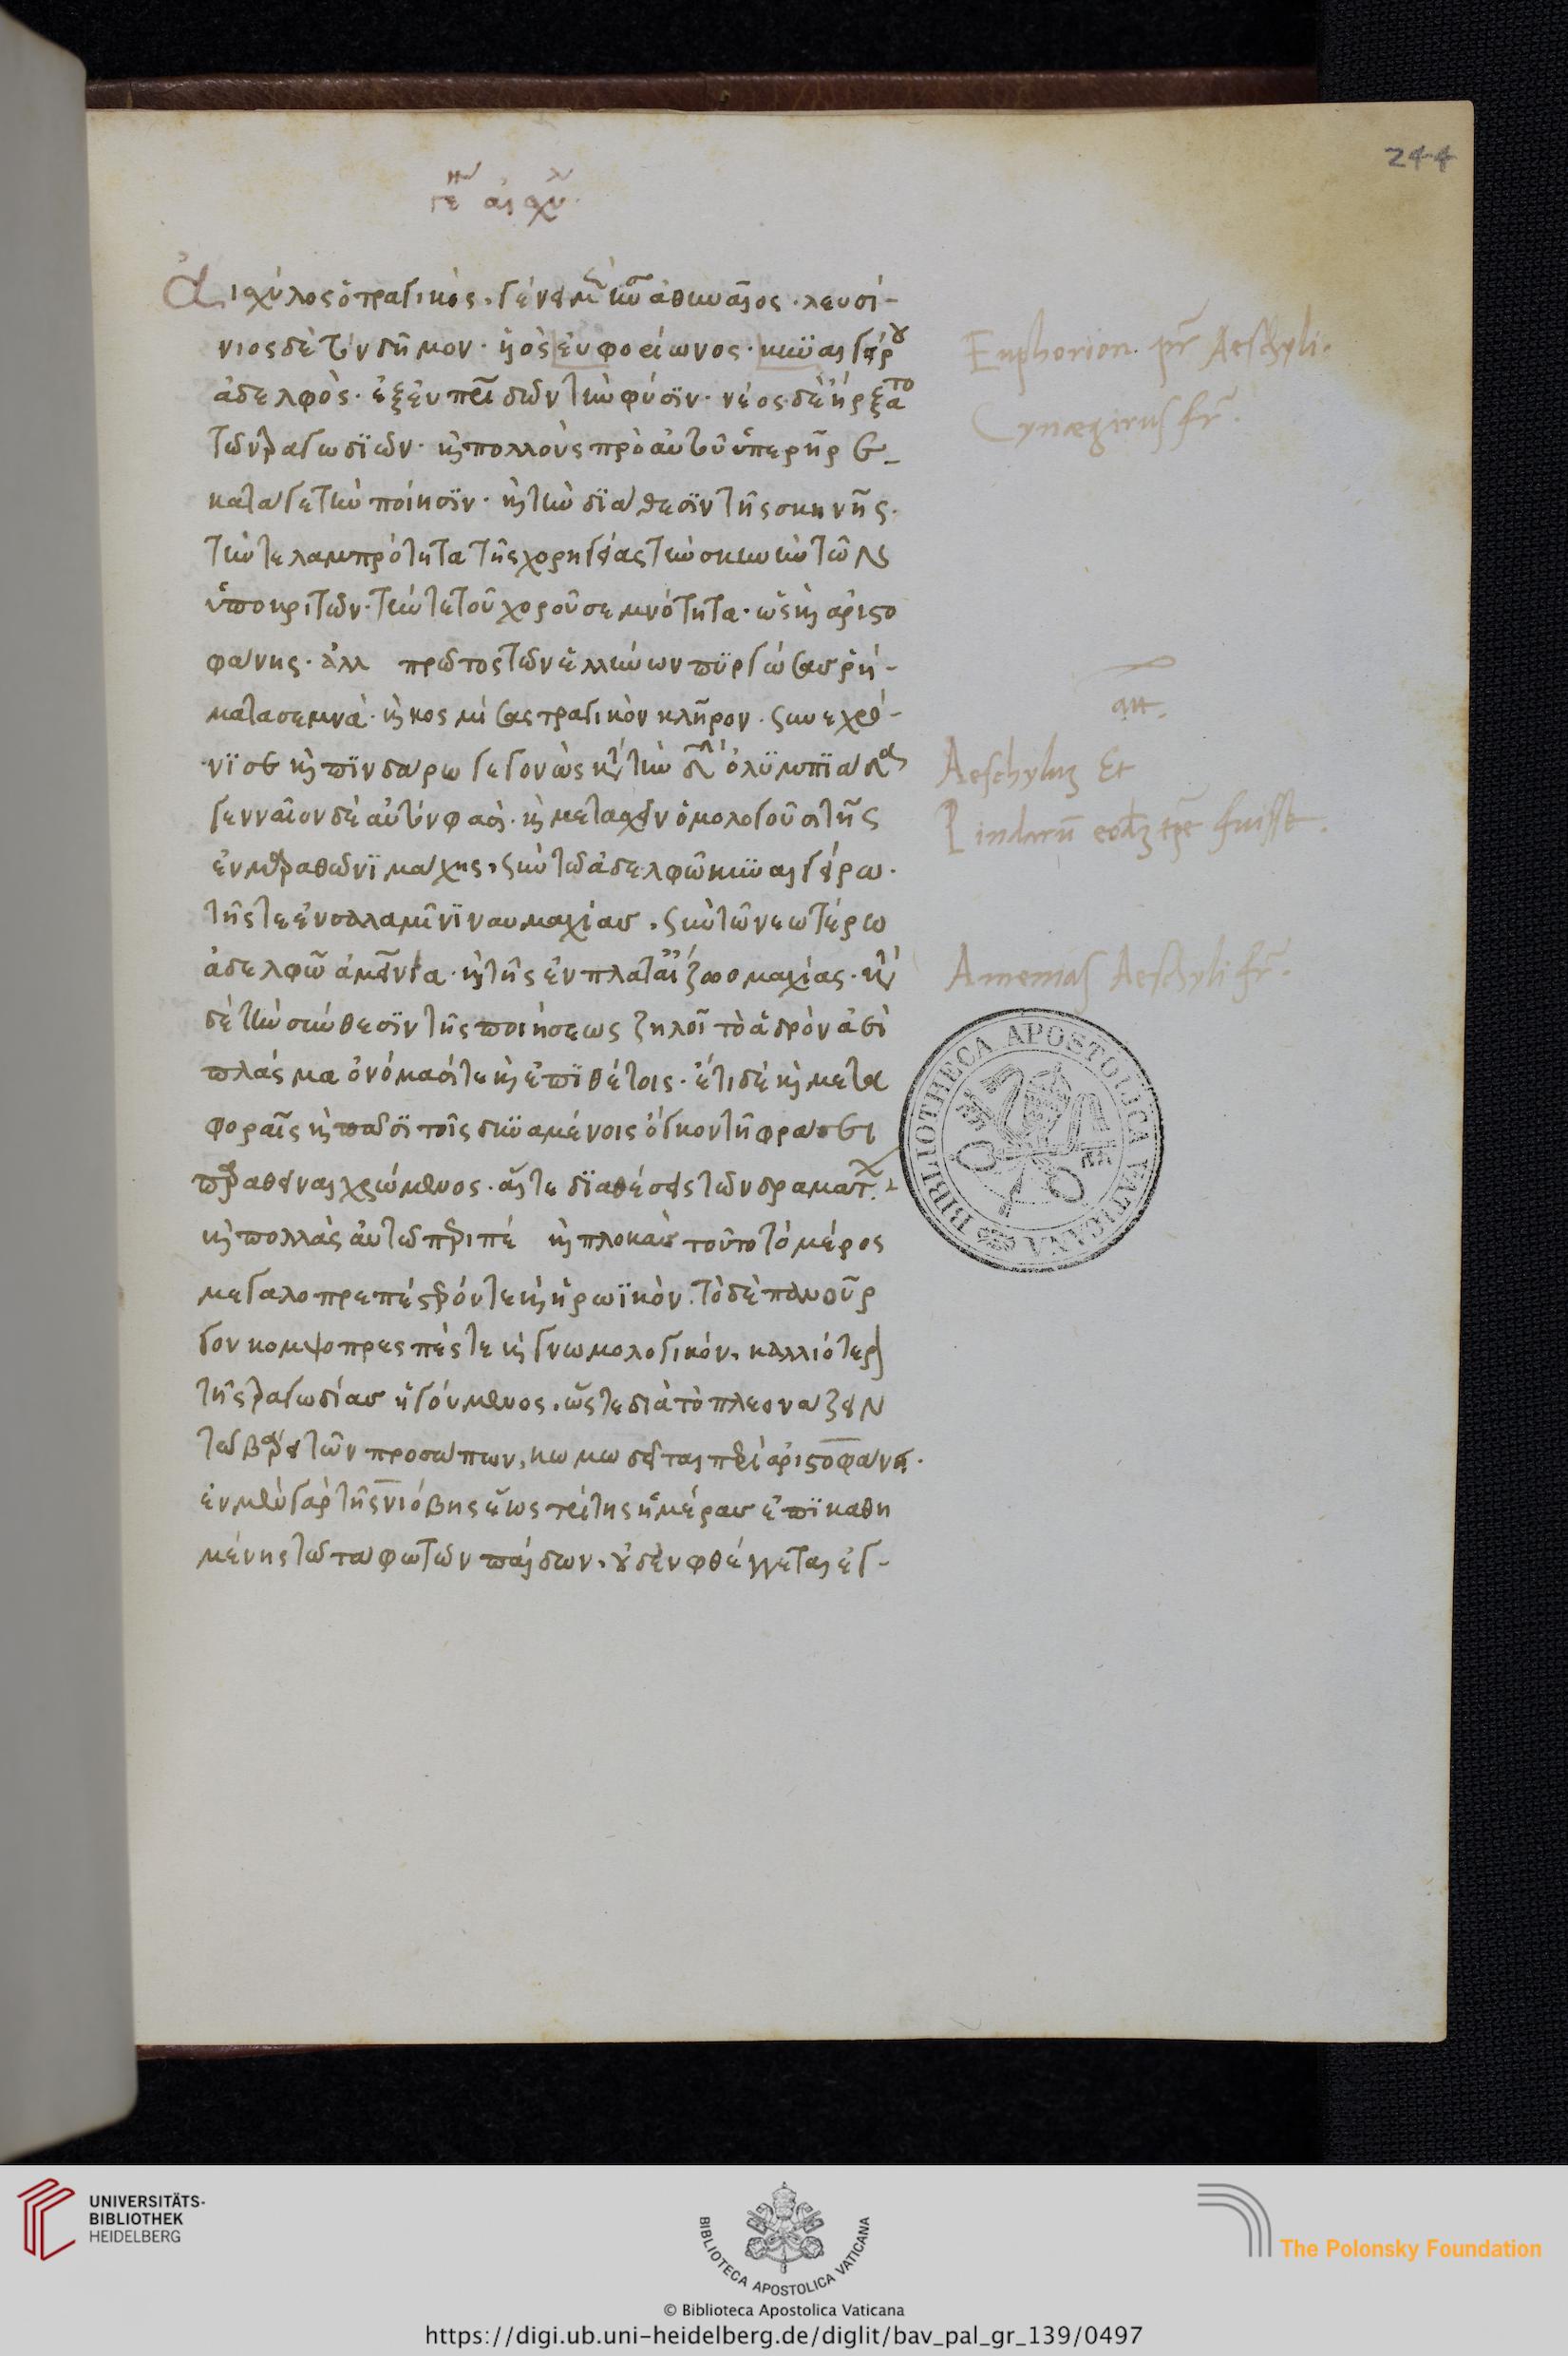 244
γέν αἰσχύλ
Αἰσχύλος ὁ τραγικὸς, γένει μὲν ἦν ἀθηναῖος · λευσί-
νιος δὲ τὸν δῆμον · ὑιὸς ἐυφορίωνος · κυναιγείρου
ἀδελφὸς · ἐξ ἐυπατριδῶν τὴν φύσϊν · νέος δὲ ἤρξατο
τῶν τραγωδϊῶν · καὶ πολλοὺς πρὸ αὐτοῦ ὑπερῆρεν
κατά γε τὴν ποίησϊν · καὶ τὴν δϊάθεσϊν τῆς σκηνῆς ·
τήν τε λαμπρότητα τῆς χορηγείας τὴν σκηνὴν τῶν
ὑποκριτῶν · τήν τε τοῦ χοροῦ σεμνότητα · ὡς καὶ ἀριστο
φάνης · ἀλλ πρῶτος τῶν ἑλλήνων πϋργώσας ῥή-
ματα σεμνά · καὶ κοσμίσας τραγικὸν κλῆρον · συνεχρό-
νϊσε καὶ πϊνδάρω γεγονὼς κατὰ τὴν ὀλϋμπϊάδα
γενναῖον δὲ αὐτόν φασι · καὶ μετασχεῖν ὁμολογοῦσι τῆς
ἐν μαραθῶνϊ μάχης, σὺν τῶ ἀδελφῶ κυναιγείρω ·
τῆς τε ἐν σαλλαμῖνϊ ναυμαχίας, σὺν τῶ νεωτέρω
ἀδελφῶ ἀμεινία · καὶ τῆς ἐν πλαταιαῖ ζωομαχίας · κατὰ
δὲ τὴν σύνθεσϊν τῆς ποιήσεως ζηλοῖ τὸ ἁδρὸν ἀεὶ
πλάσμα ὀνόμασί τε καὶ ἐπϊθέτοις · ἔτι δὲ καὶ μετα
φοραῖς καὶ πᾶσϊ τοῖς δυναμένοις ὄγκον τῆ φράσει
περιθεῖναι χρώμενος · αἵ τε δϊαθέσεις τῶν δραμάτ
καὶ πολλὰς αὐτῶ περιπέ καὶ πλοκὰς τοῦτο τὸ μέρος
μεγαλοπρεπές τε καὶ ἡρωϊκὸν · τὸ δὲ πανοῦρ
γον κομψοπρεσπές τε καὶ γνωμολογικόν, καλλιότερ
τῆς τραγωδίας ἡγούμενος, ὥστε διὰ τὸ πλεονάζειν
τῶ βάρει τῶν προσώπων, κωμωδεῖται παρὰ ἀριστοφάνει ·
ἐν μὲν γὰρ τῆς νιόβης ἕως τρίτης ἡμέρας ἐπϊκαθη
μένης τῶ τάφω τῶν παίδων, οὐδὲν φθέγγεται ἐγ-
Euphorion pr Aeschyli.
Cynægirus fr.
Aeschylus Et
Pindarū eodē tpe fuisse.
Amenias Aeschyli fr.
BIBLIOTHECA APOSTOLICA VATICANA
UNIVERSITÄTS-
BIBLIOTHEK
HEIDELBERG
BIBLIOTECA APOSTOLICA VATICANA
The Polonsky Foundation
© Biblioteca Apostolica Vaticana
https://digi.ub.uni-heidelberg.de/diglit/bav_pal_gr_139/0497